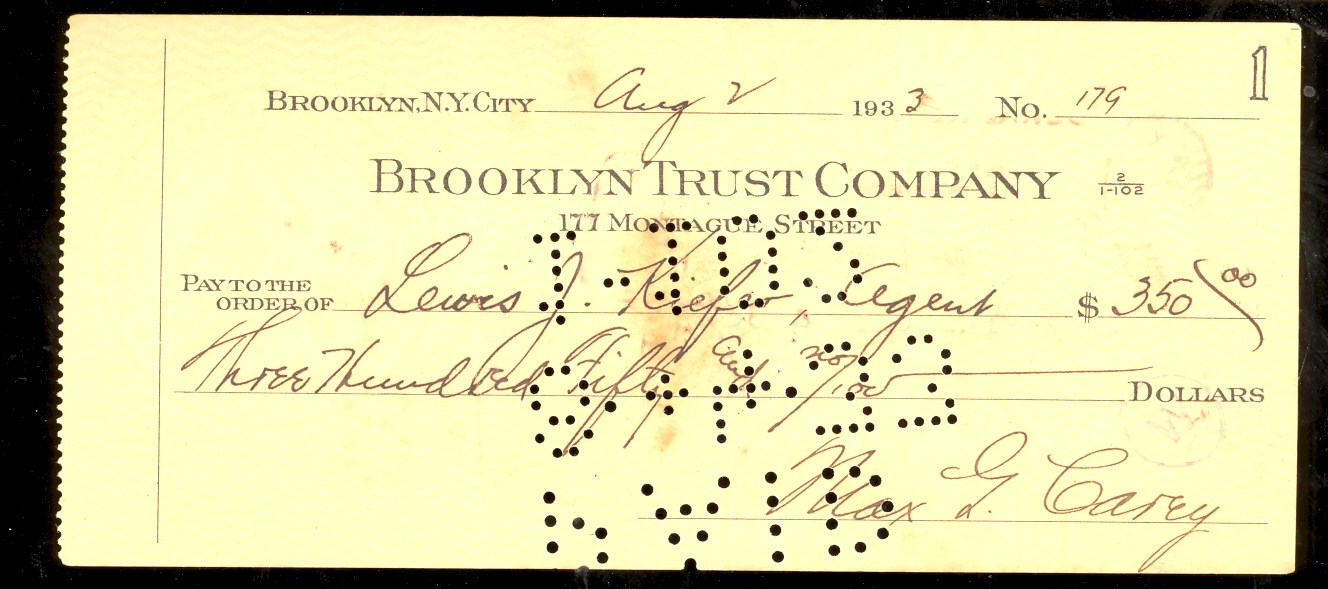 1
BROOKLYN, N.Y. CITY Aug 2 1933 No. 179
BROOKLYN TRUST COMPANY 2/1-102
177 MONTAGUE STREET
PAY TO THE ORDER OF Lewis J. Kiefer, Agent $ 350 00
Three Hundred Fifty and no/100 DOLLARS
Max G. Carey